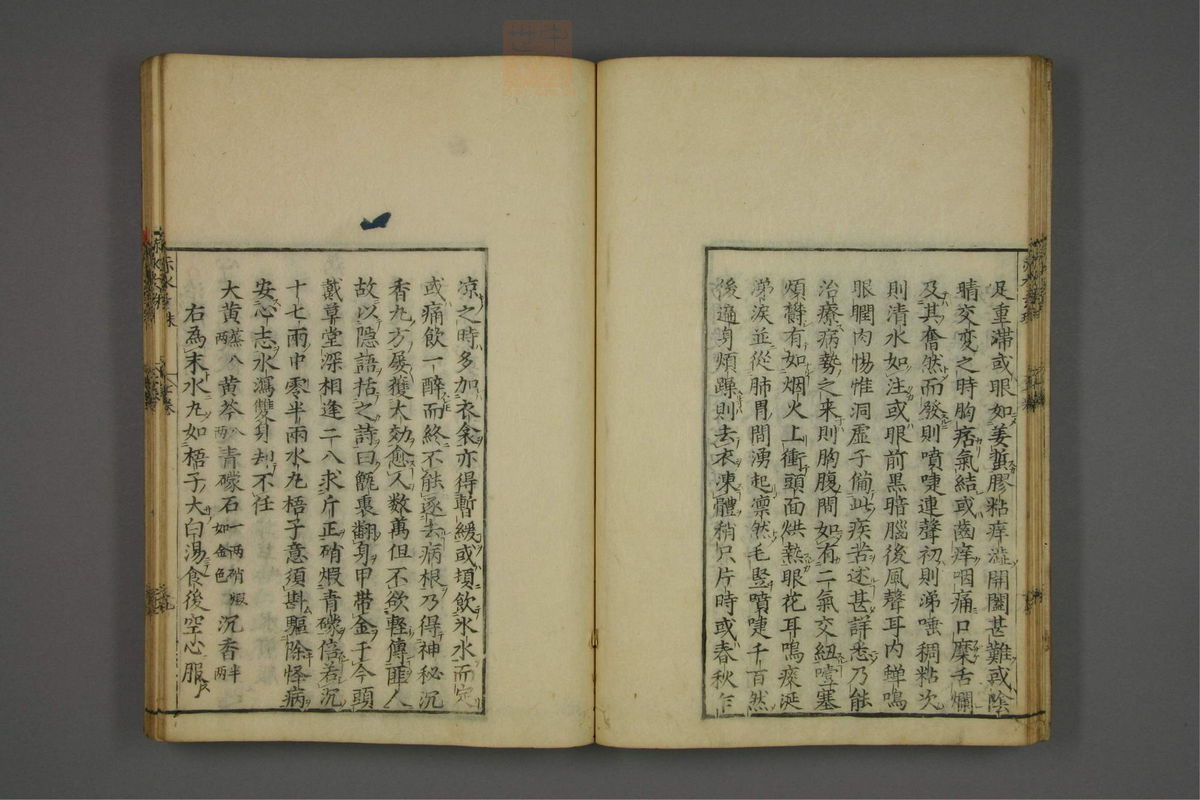 足重滯或眼如姜蜇膠粘痒澁開闔甚難或陰
晴交変之時胸痞氣結或齒痒咽痛口糜舌爛
及其奮然而發則噴嚏連聲初則涕唾稠粘次
則清水如注或眼前黒暗腦後風聲耳内蟬鳴
眼膶肉惕惟洞虚子備此疾苦述甚詳悉乃能
治療病勢之来則胸腹間如有二氣交紐噎塞
煩欝有如烟火上衝頭面烘熱眼花耳鳴痰涎
涕淚並從肺胃間湧起凛然毛竪噴嚏千百然
後遍身煩躁則去衣凍體稍只片時或春秋乍
凉之時多加衣衾亦得暫緩或頓飲氷水而定
或痛飲一醉而終不能逐去病根乃得神秘沉
香丸方屡獲大効愈人数萬但不欲軽傳匪人
故以隠語括之詩曰甑裏翻身甲帯金于今頭
戴草堂深相逢二八求斤正硝煆青礞倍若沉
十七両中零半両水丸梧子意須斟驅除怪病
安心志水瀉雙身却不任
大黄蒸八両黄芩八両青礞石一両硝煆如金色沉香半両
右為末水丸如梧子大白湯食後空心服
赤水
末